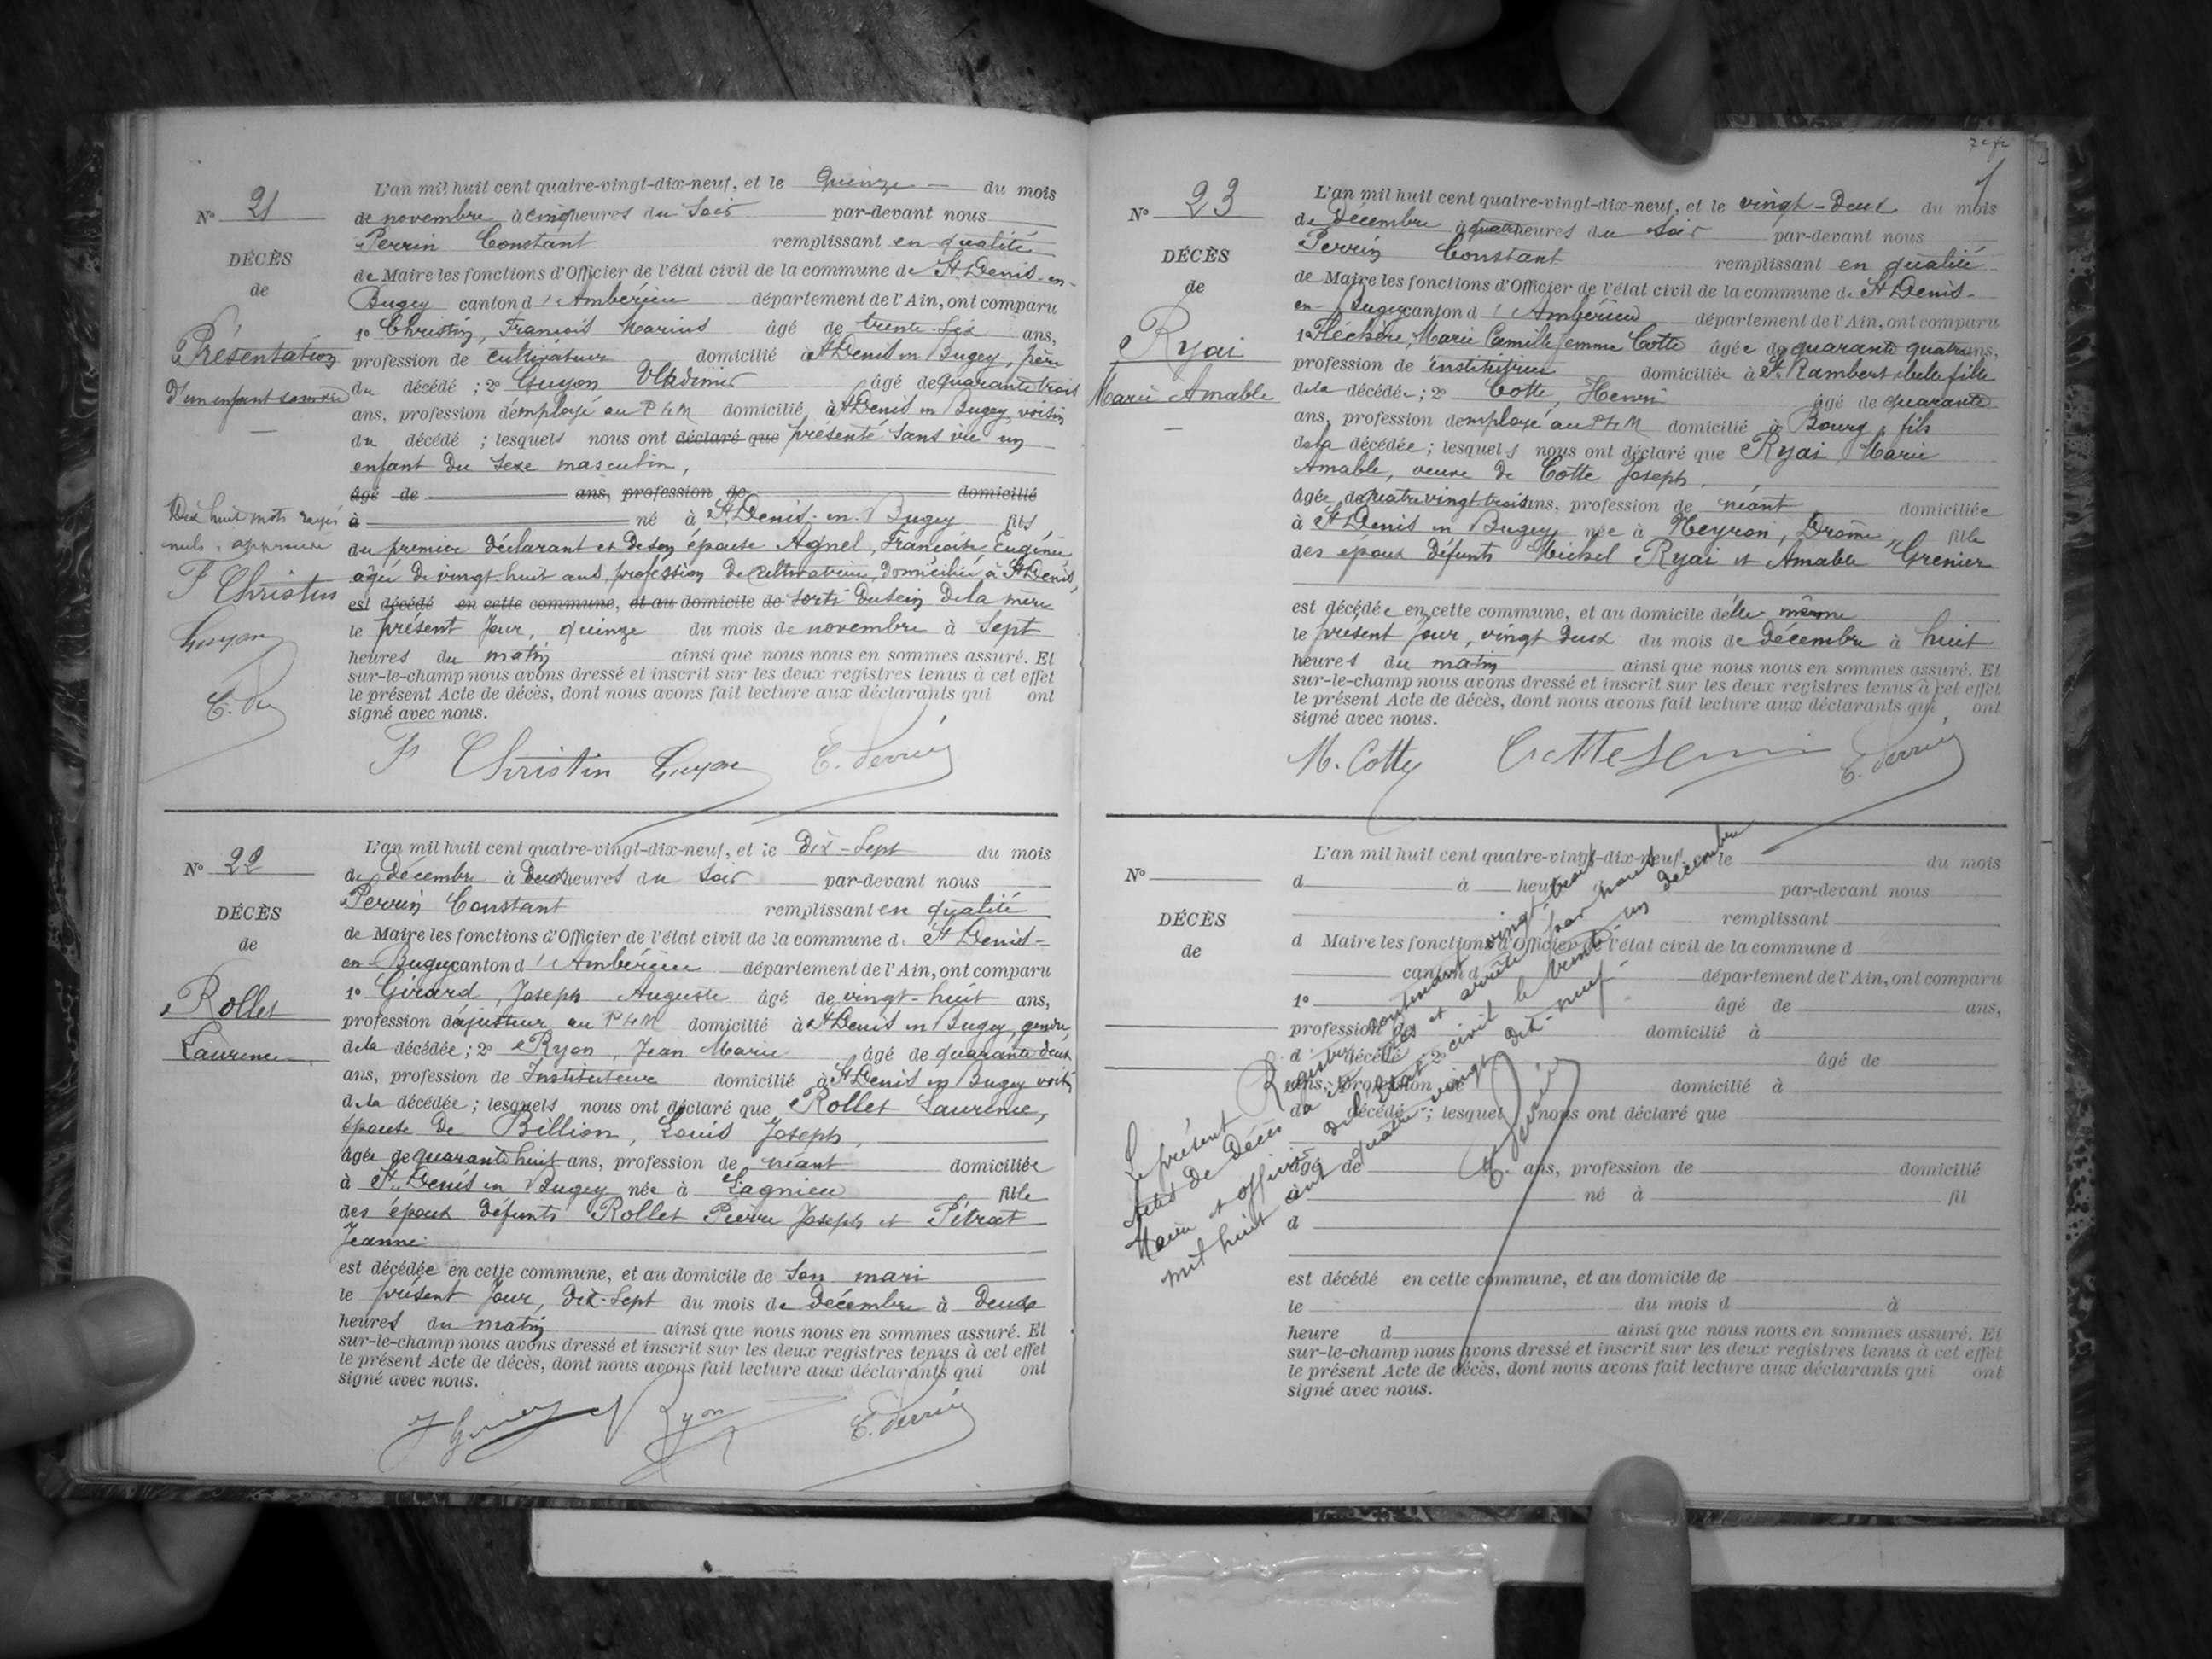 N° 21
DÉCÈS
de
Présentation
d'un enfant sans vie
Dix huit mots rayés
nuls, approuvé
F Christin
Guyon
L'an mil huit cent quatre-vingt-dix-neuf, et le quinze du mois
de novembre à cinq heures du soir par-devant nous
Perrin Constant remplissant en qualité
de Maire les fonctions d'Officier de l'état civil de la commune de St Denis-en-
Bugey canton d'Ambérieu département de l'Ain, ont comparu
1° Christin, François Marius âgé de trente six ans,
profession de cultivateur domicilié à St Denis en Bugey, père
du décédé ; 2° Guyon Vladimir âgé de quarante trois
ans, profession d'employé au PLM domicilié à St Denis en Bugey, voisin
du décédé ; lesquels nous ont déclaré que présenté sans vie un
enfant du sexe masculin,
âgé de ans, profession de domicilié
à né à St Denis-en-Bugey fils
du premier déclarant et de son épouse Agnel, Françoise Eugénie
âgée de vingt-huit ans, profession de cultivatrice, domiciliée à St Denis,
est décédé en cette commune, et au domicile de sorti du sein de la mère
le présent jour, quinze du mois de novembre à sept
heures du matin ainsi que nous nous en sommes assuré. Et
sur-le-champ nous avons dressé et inscrit sur les deux registres tenus à cet effet
le présent Acte de décès, dont nous avons fait lecture aux déclarants qui ont
signé avec nous.
F Christin Guyon C. Perrin
N° 22
DÉCÈS
de
Rollet
Laurence
L'an mil huit cent quatre-vingt-dix-neuf, et le dix-sept du mois
de décembre à deux heures du soir par-devant nous
Perrin Constant remplissant en qualité
de Maire les fonctions d'Officier de l'état civil de la commune de St Denis-
en-Bugey canton d'Ambérieu département de l'Ain, ont comparu
1° Girard, Joseph Auguste âgé de vingt-huit ans,
profession d'ajusteur au PLM domicilié à St Denis en Bugey, gendre
de la décédée ; 2° Ryon, Jean Marie âgé de quarante deux
ans, profession de Instituteur domicilié à St Denis en Bugey voisin
de la décédée ; lesquels nous ont déclaré que Rollet Laurence,
épouse de Billion, Louis Joseph,
âgée de quarante huit ans, profession de néant domiciliée
à St Denis en Bugey née à Lagnieu fille
des époux défunts Rollet Pierre Joseph et Pétrat
Jeanne
est décédée en cette commune, et au domicile de son mari
le présent jour, dix-sept du mois de décembre à deux
heures du matin ainsi que nous nous en sommes assuré. Et
sur-le-champ nous avons dressé et inscrit sur les deux registres tenus à cet effet
le présent Acte de décès, dont nous avons fait lecture aux déclarants qui ont
signé avec nous.
Ryon C. Perrin
N° 23
DÉCÈS
de
Ryai
Marie Amable
L'an mil huit cent quatre-vingt-dix-neuf, et le vingt-deux du mois
de décembre à quatre heures du soir par-devant nous
Perrin Constant remplissant en qualité
de Maire les fonctions d'Officier de l'état civil de la commune de St Denis-
en-Bugey canton d'Ambérieu département de l'Ain, ont comparu
1° Fléchère, Marie Camille femme Cotte âgée de quarante quatre ans,
profession de institutrice domiciliée à St Rambert, belle fille
de la décédée ; 2° Cotte, Henri âgé de quarante
ans, profession d'employé au PLM domicilié à Bourg, fils
de la décédée ; lesquels nous ont déclaré que Ryai Marie
Amable, veuve de Cotte Joseph,
âgée de quatre vingt trois ans, profession de néant domiciliée
à St Denis en Bugey née à Neyron, Drôme, fille
des époux défunts Michel Ryai et Amable Grenier
est décédée en cette commune, et au domicile d'elle même
le présent jour, vingt deux du mois de décembre à huit
heures du matin ainsi que nous nous en sommes assuré. Et
sur-le-champ nous avons dressé et inscrit sur les deux registres tenus à cet effet
le présent Acte de décès, dont nous avons fait lecture aux déclarants qui ont
signé avec nous.
M. Cotte Cotte Henri C. Perrin
N°
DÉCÈS
de
L'an mil huit cent quatre-vingt-dix-neuf, et le du mois
d à heure par-devant nous
remplissant
d Maire les fonctions d'Officier de l'état civil de la commune d
canton d département de l'Ain, ont comparu
1° âgé de ans,
profession de domicilié à
d décédé ; 2° âgé de
ans, profession de domicilié à
d décédé ; lesquel nous ont déclaré que
âgé de ans, profession de domicilié
né à fil
d
est décédé en cette commune, et au domicile de
le du mois d à
heure d ainsi que nous nous en sommes assuré. Et
sur-le-champ nous avons dressé et inscrit sur les deux registres tenus à cet effet
le présent Acte de décès, dont nous avons fait lecture aux déclarants qui ont
signé avec nous.
Le présent Registre contenant vingt trois
actes de décès a été clos et arrêté par nous
Maire et officier de l'état civil le trente un décembre
mil huit cent quatre vingt dix-neuf
C. Perrin